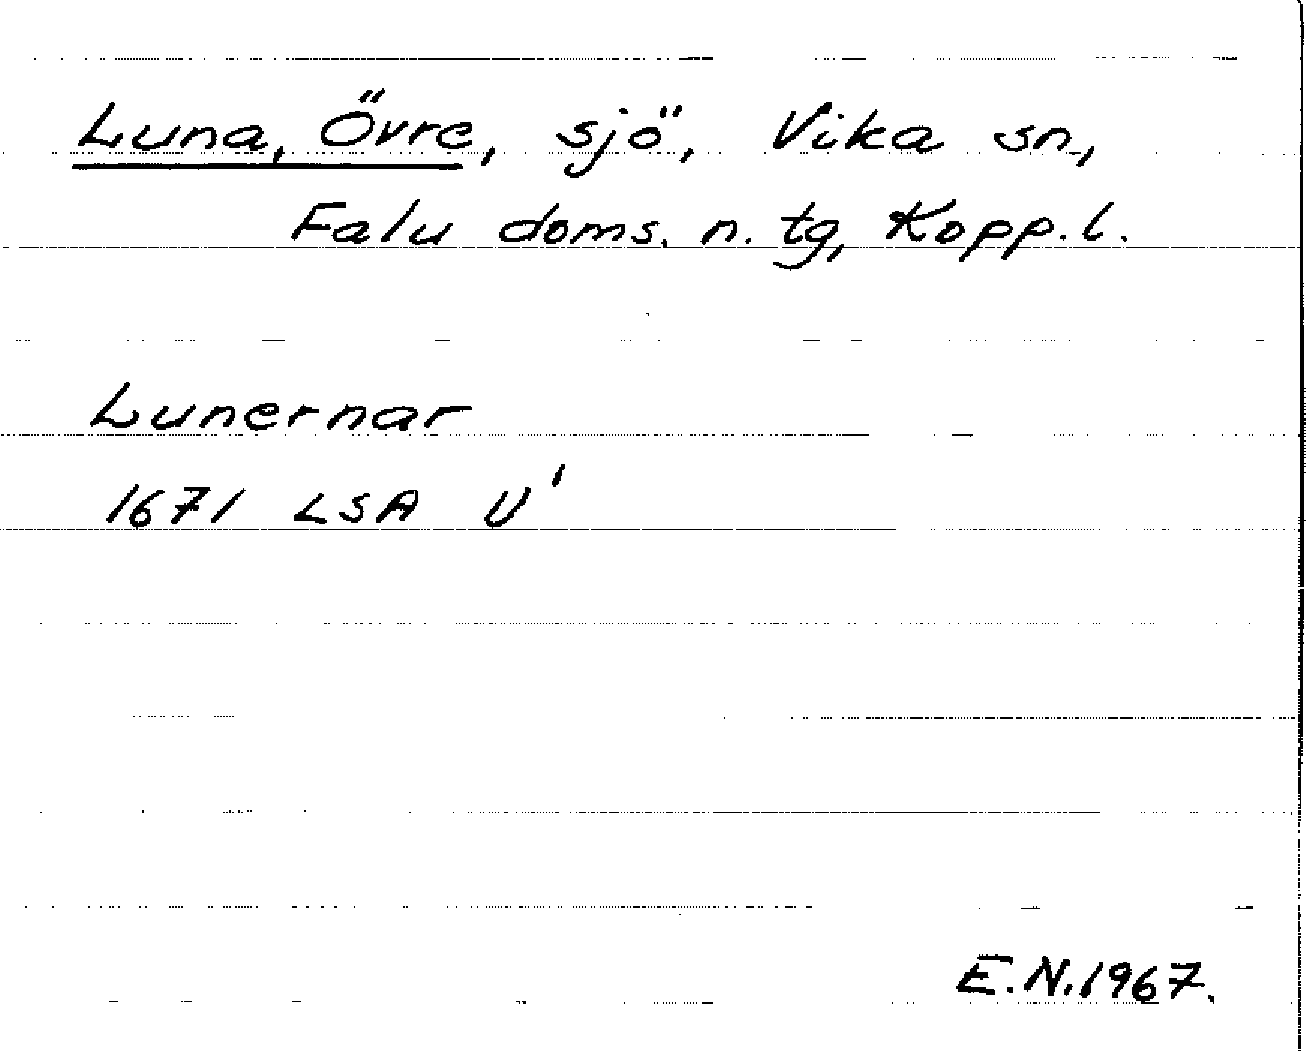 Luna, Övre, sjö, Vika sn,
Falu doms. n. tg, Kopp. l.
Lunernar
1671 LSA U'
E.N.1967.